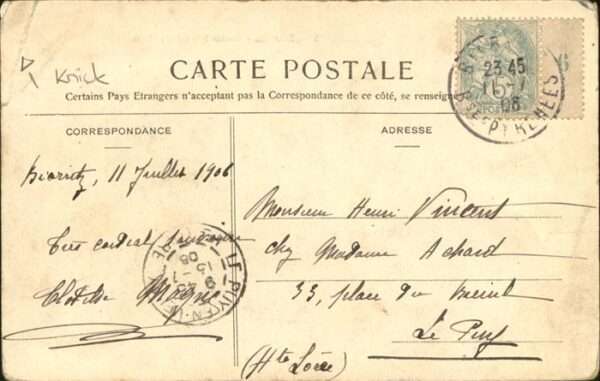 Knick
CARTE POSTALE
Certains Pays Etrangers n'acceptent pas la Correspondance de ce côté, se renseigne
CORRESPONDANCE
ADRESSE
23 45
06
PYRENEES
Biarritz, 11 Juillet 1906
Très cordial souvenir
Monsieur Henri Vincent
chez Madame Achard
33, place du
Le Puy
(Hte Loire)
LE PUY-EN-
15-7
06
6